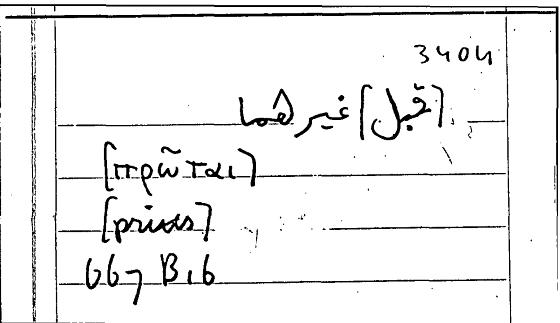 3404
[قبل] غيرهما
[πρῶται]
[prius]
667 B16